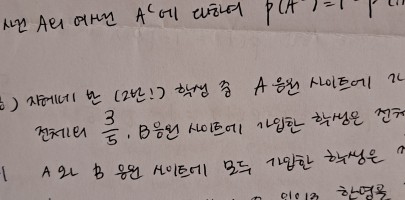 사건 A의 여사건 Aᶜ에 대하여 P(Aᶜ)=1-P(
) 지혜네 반 (2반!) 학생 중 A응원 사이트에 가
전체의 3/5, B응원 사이트에 가입한 학생은 전체
A와 B 응원 사이트에 모두 가입한 학생은
한명을